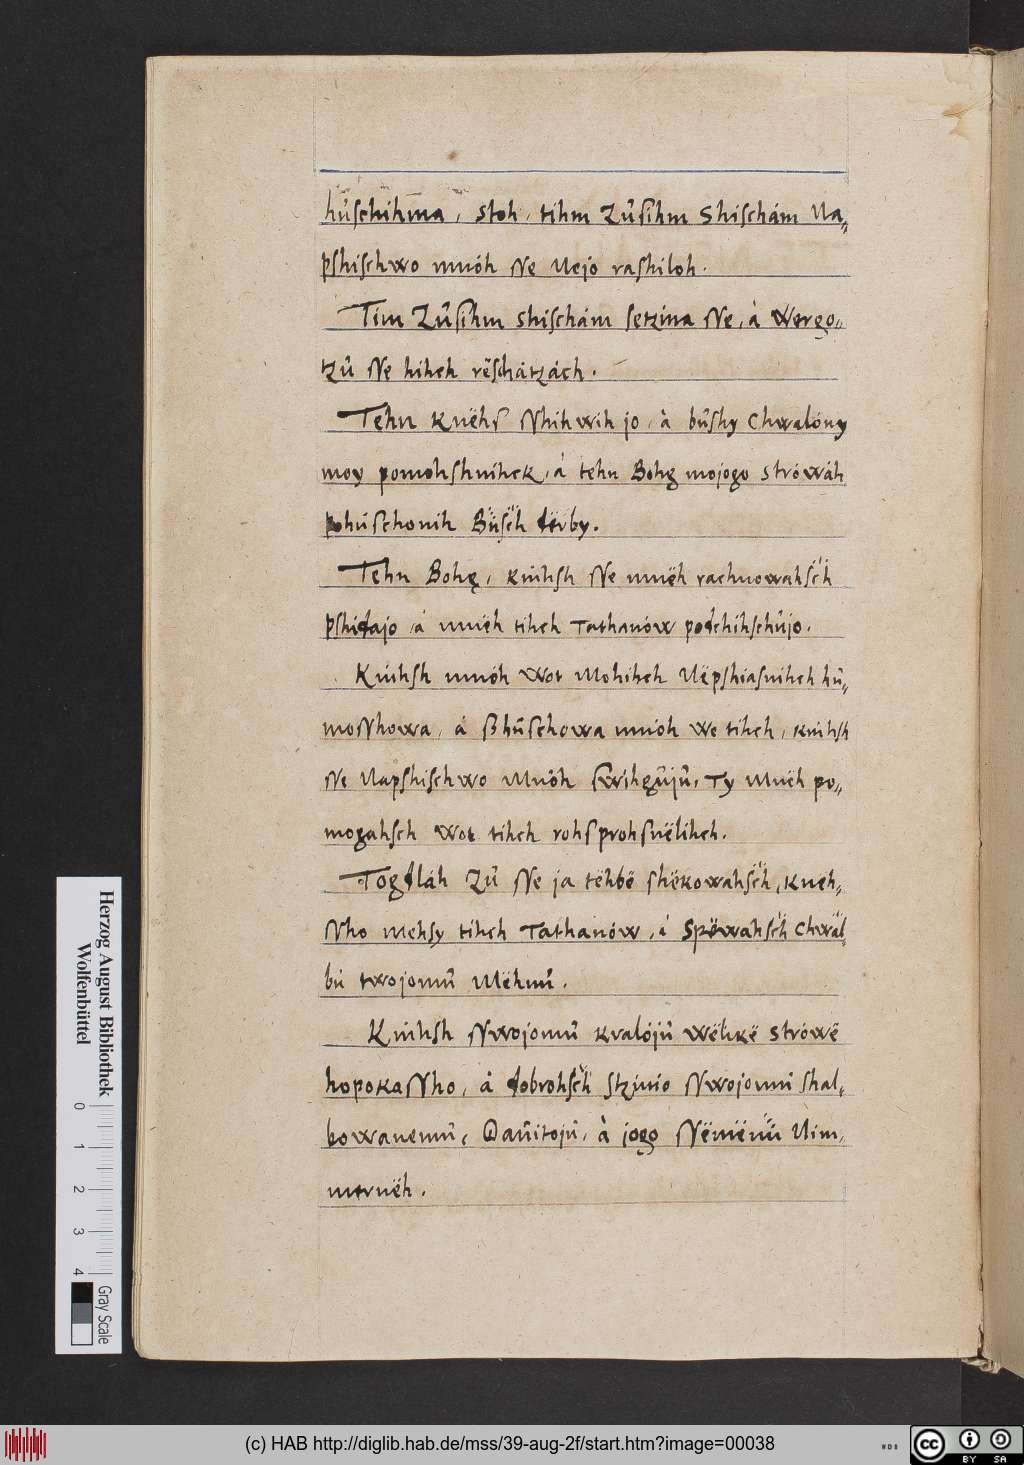 hůschihma, stoh, tihm Zůsihm Shischám Na„
pshischwo mnóh Ne Nejo rashiloh.
Tim Zůsihm shischám setzina Ne, à Wergo„
tzů Ne hihch rẽschátzách.
Tehn Knëhs Nhihwih jo, à bůshy Chwalóny
moy pomohshnihek, à tehn Bohg mojogo strówáh
pohúschonih Bůsčh dërby.
Tehn Bohg, kńihsh Ne mnëh rachnowahsčh
pshidajo, à mnëh tihch Tathanów podchihschůjo.
Kńihsh mnóh Wot Mohihch Nëpshiasnihch hů„
moNhowa, á ßhůschowa mnóh we tihch, kńihsh
Ne Napshischwo Mnóh swihgůjů, Ty Mnëh po„
mogahsch Wot tihch rohsprohsnëlihch.
Togdláh Zů Ne ja tëhbë shëkowahsčh, kneh„
Nho mehsy tihch Tathanów, á Spëwahsčh Chwál„
bu twojomů Mëhnů.
Kńihsh Nwojomů kralójů wëlikë strówë
hopokaNho, á dobrohsčh stzinio Nwojomů shal„
bowanemů, Dawitojů, à jogo Nëmënů Nim„
mernëh.
Herzog August Bibliothek
Wolfenbüttel
0 1 2 3 4
Gray Scale
(c) HAB http://diglib.hab.de/mss/39-aug-2f/start.htm?image=00038
WDB
cc BY SA